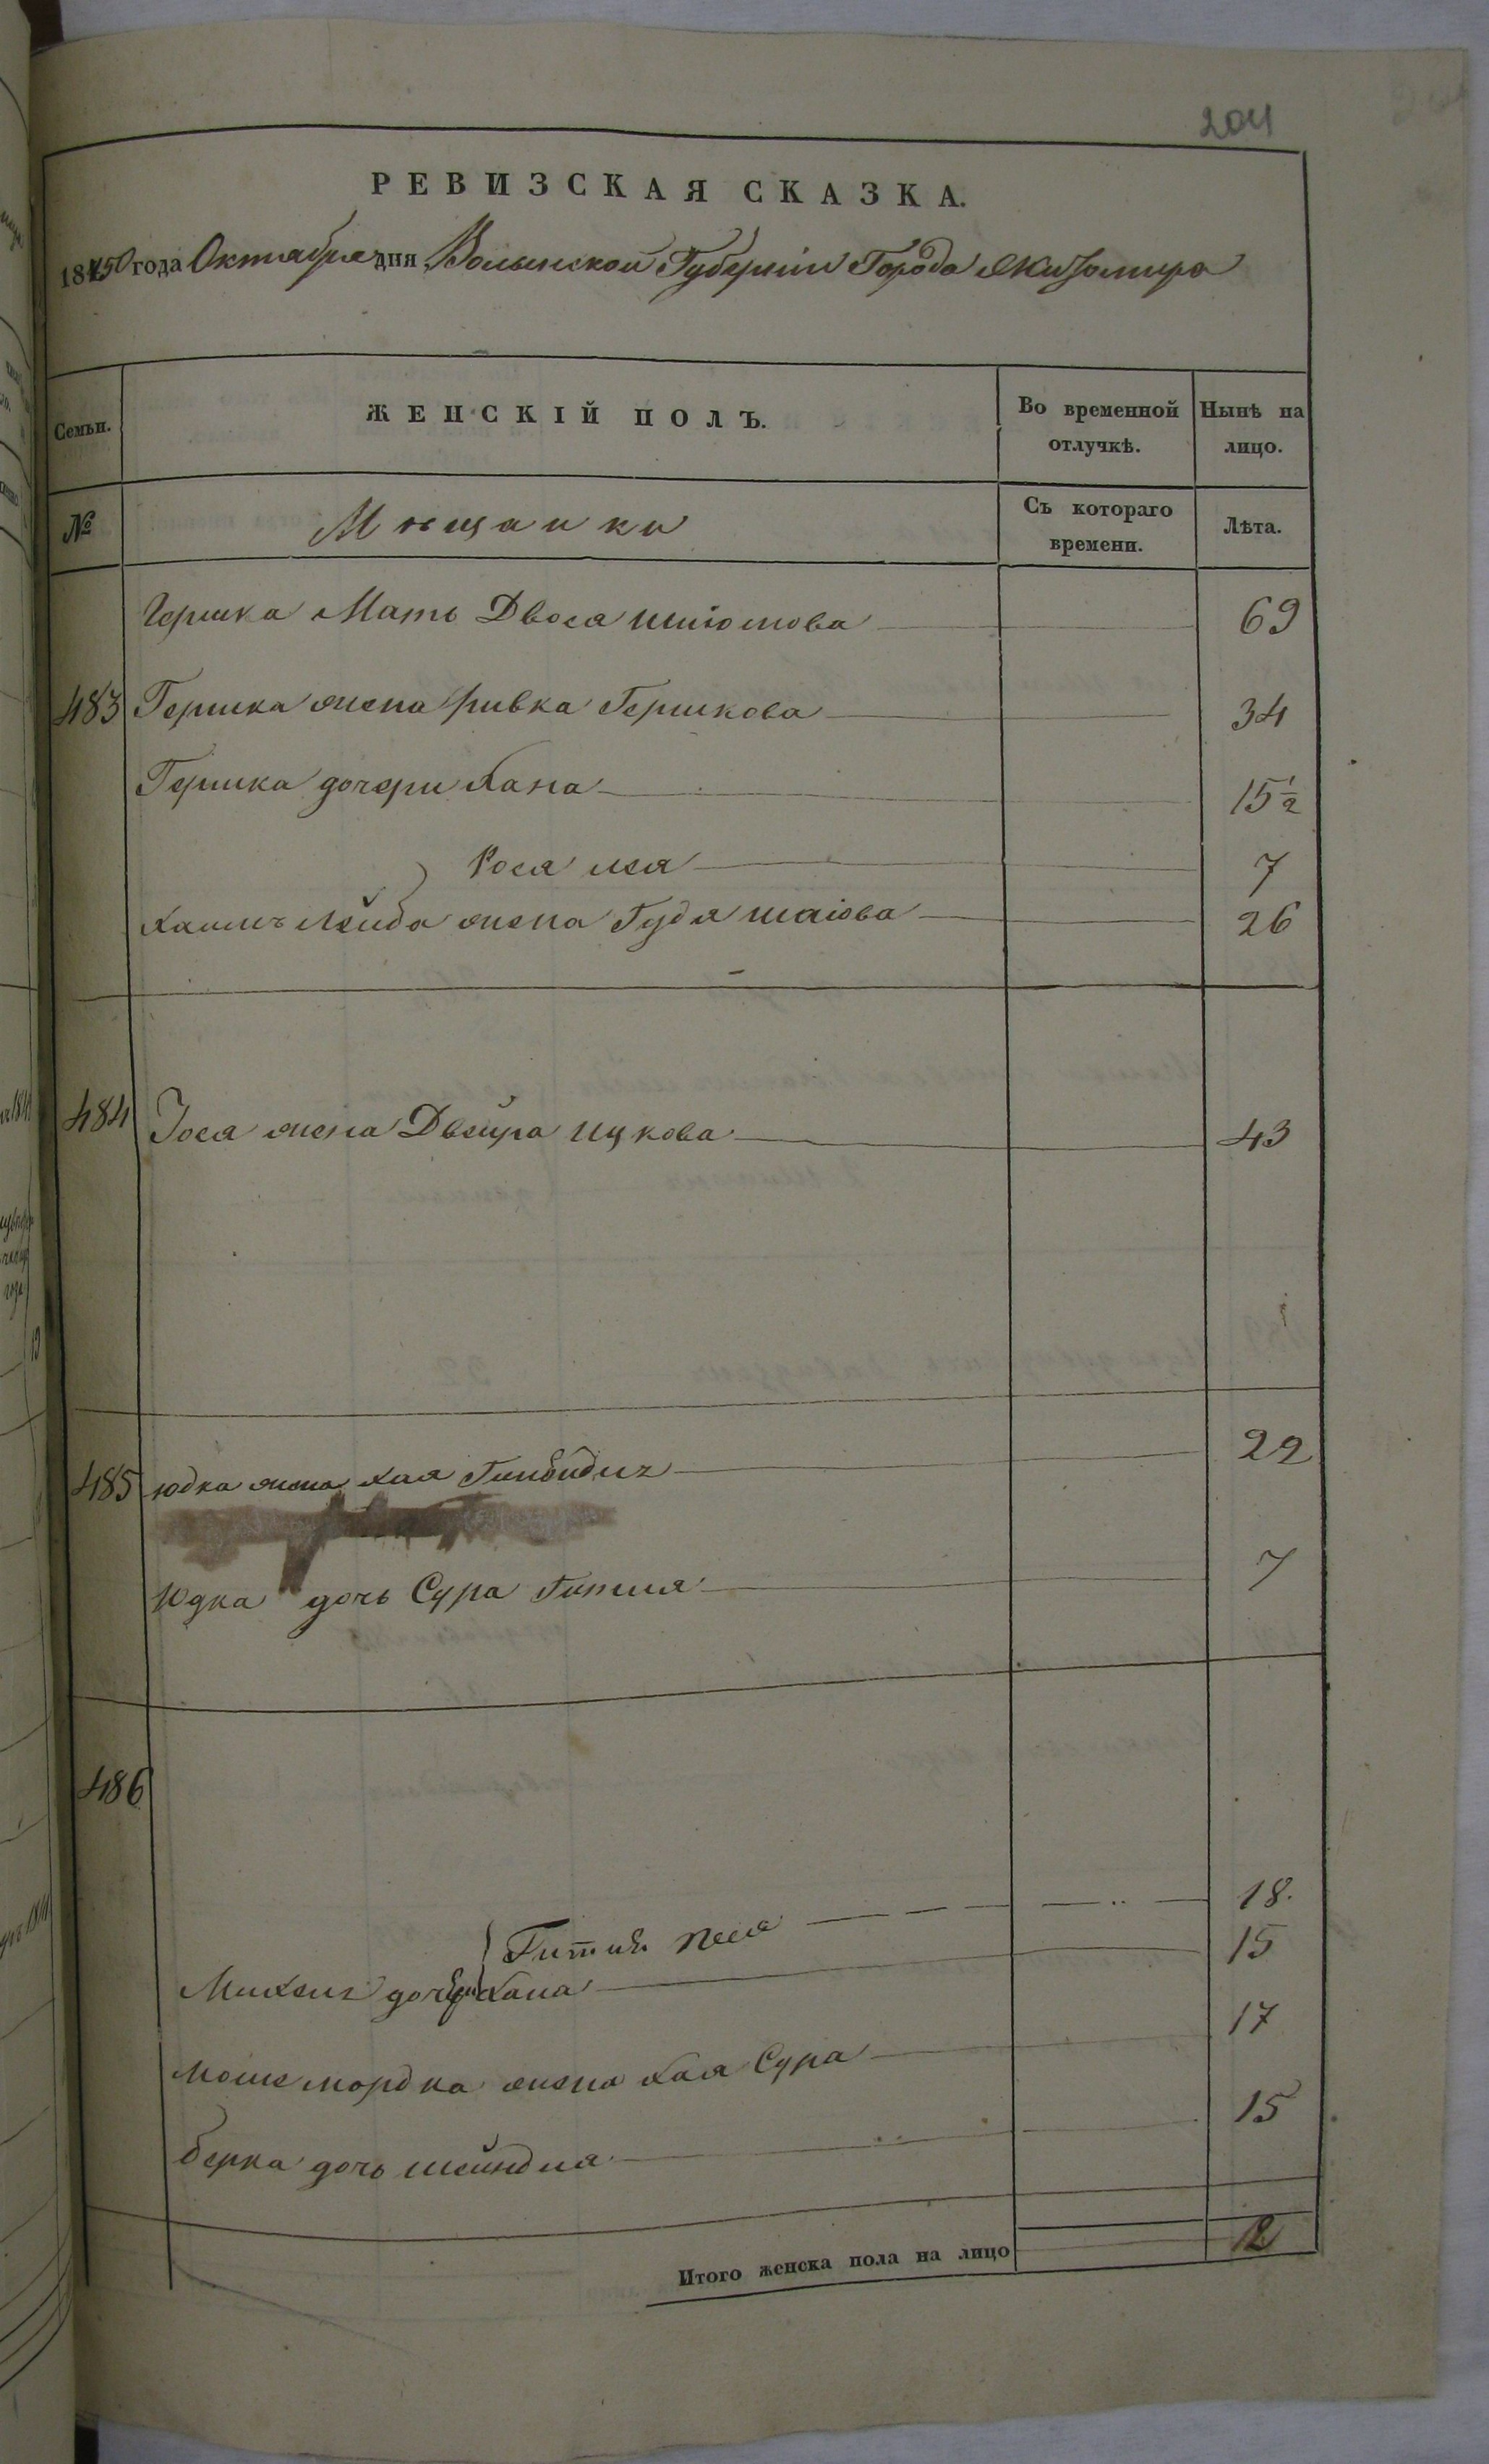 204
РЕВИЗСКАЯ СКАЗКА.
1850 года Октября дня Волынской Губернии Города Житомира
Семьи. ЖЕНСКІЙ ПОЛЪ. Во временной отлучкѣ. Нынѣ на лицо.
№ Мѣщанки Съ котораго времени. Лѣта.
Гершка Мать Двося 69
483 Гершка жена Ривка Гершкова 34
Гершка дочери Хана 15½
Рося лея 7
Хаимъ Лейба жена Гудя шаіова 26
484 Іося жена Двейра ицкова 43
485 юдка жена Хая 22
Юдка дочь Сура Гитля 7
486
Гитля песя 18.
Михель дочери Хана 15
Мошемордка жена Хая Сура 17
берка дочь шейндля 15
Итого женска пола на лицо 12